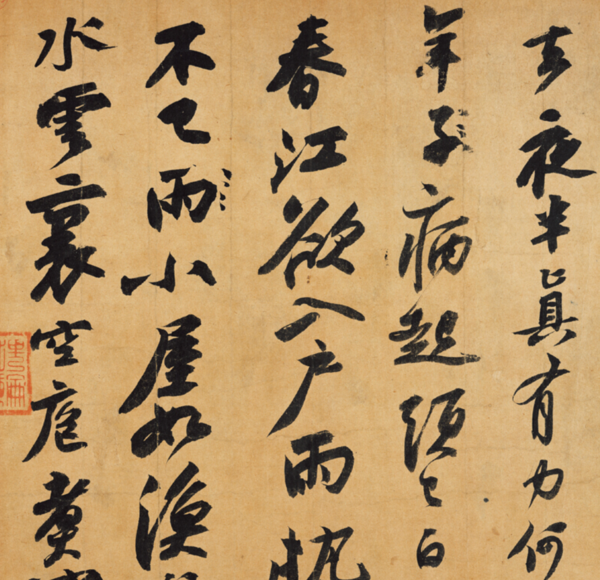 去夜半眞有力何
年子病起頭已白
春江欲入戶雨勢
不已雨小屋如漁
水雲裏空庖煮